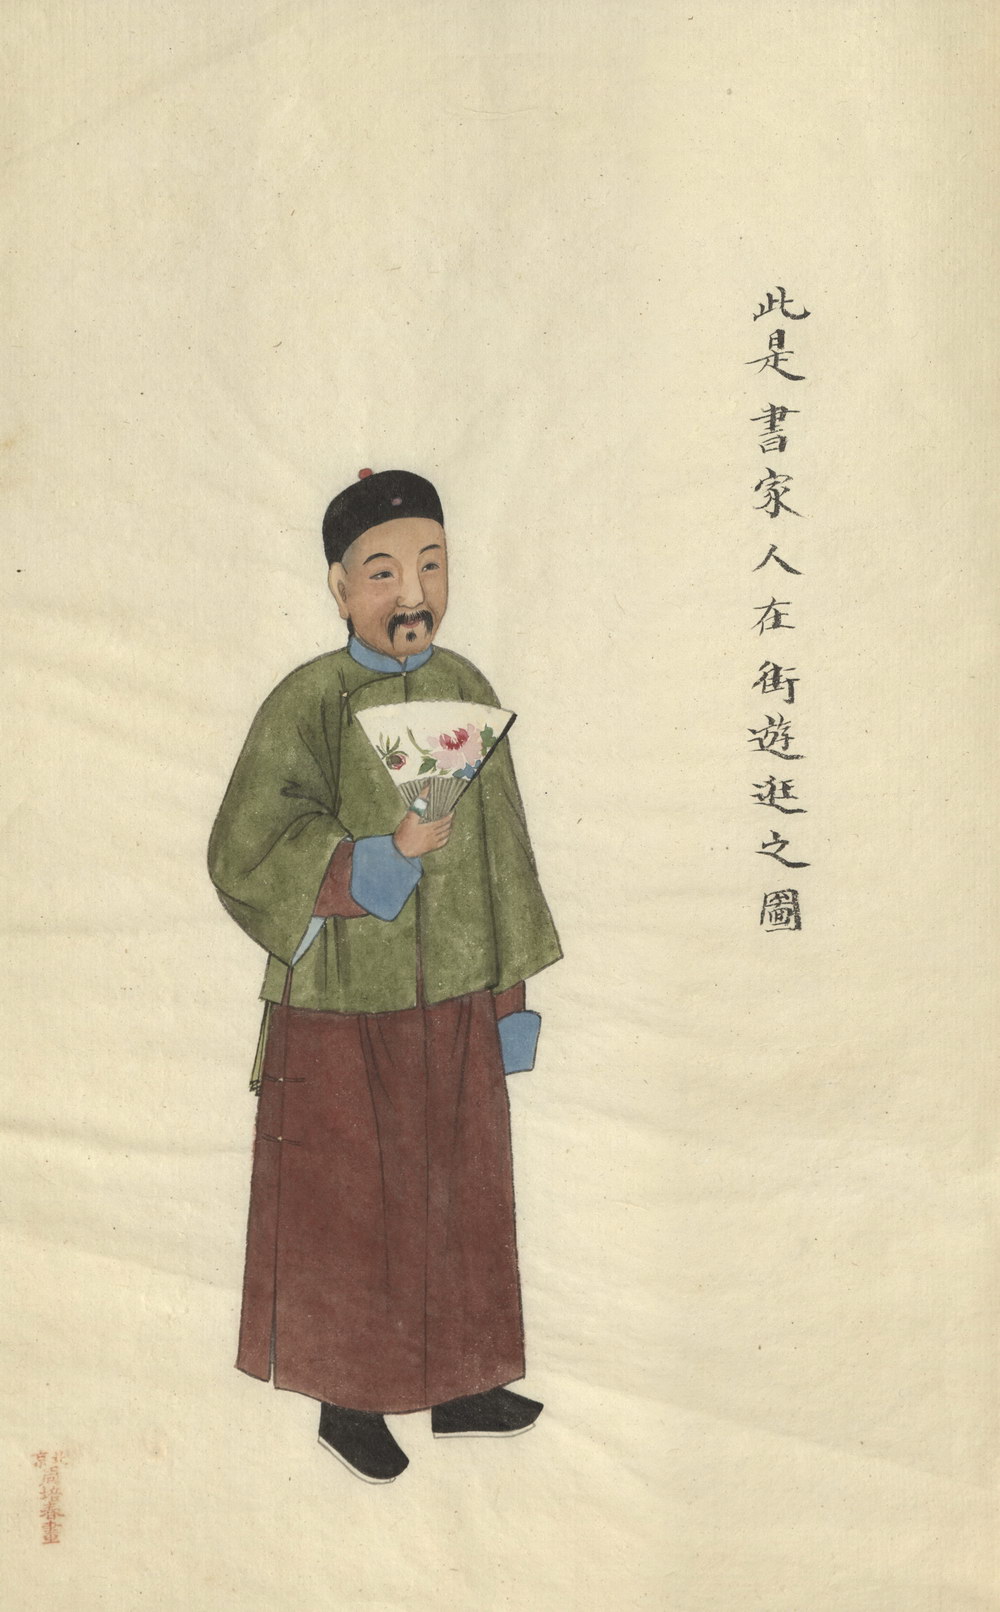 此是書家人在街遊逛之圖
北京
周培春畫